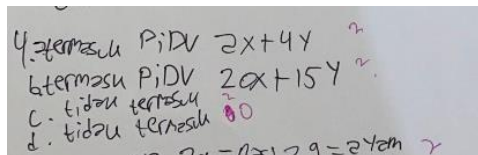 4. a termasuk PiDV 2x+4y 2
b termasu PiDV 20x+15y 2
c. tidau termasuk 2
d. tidau termasuk 0